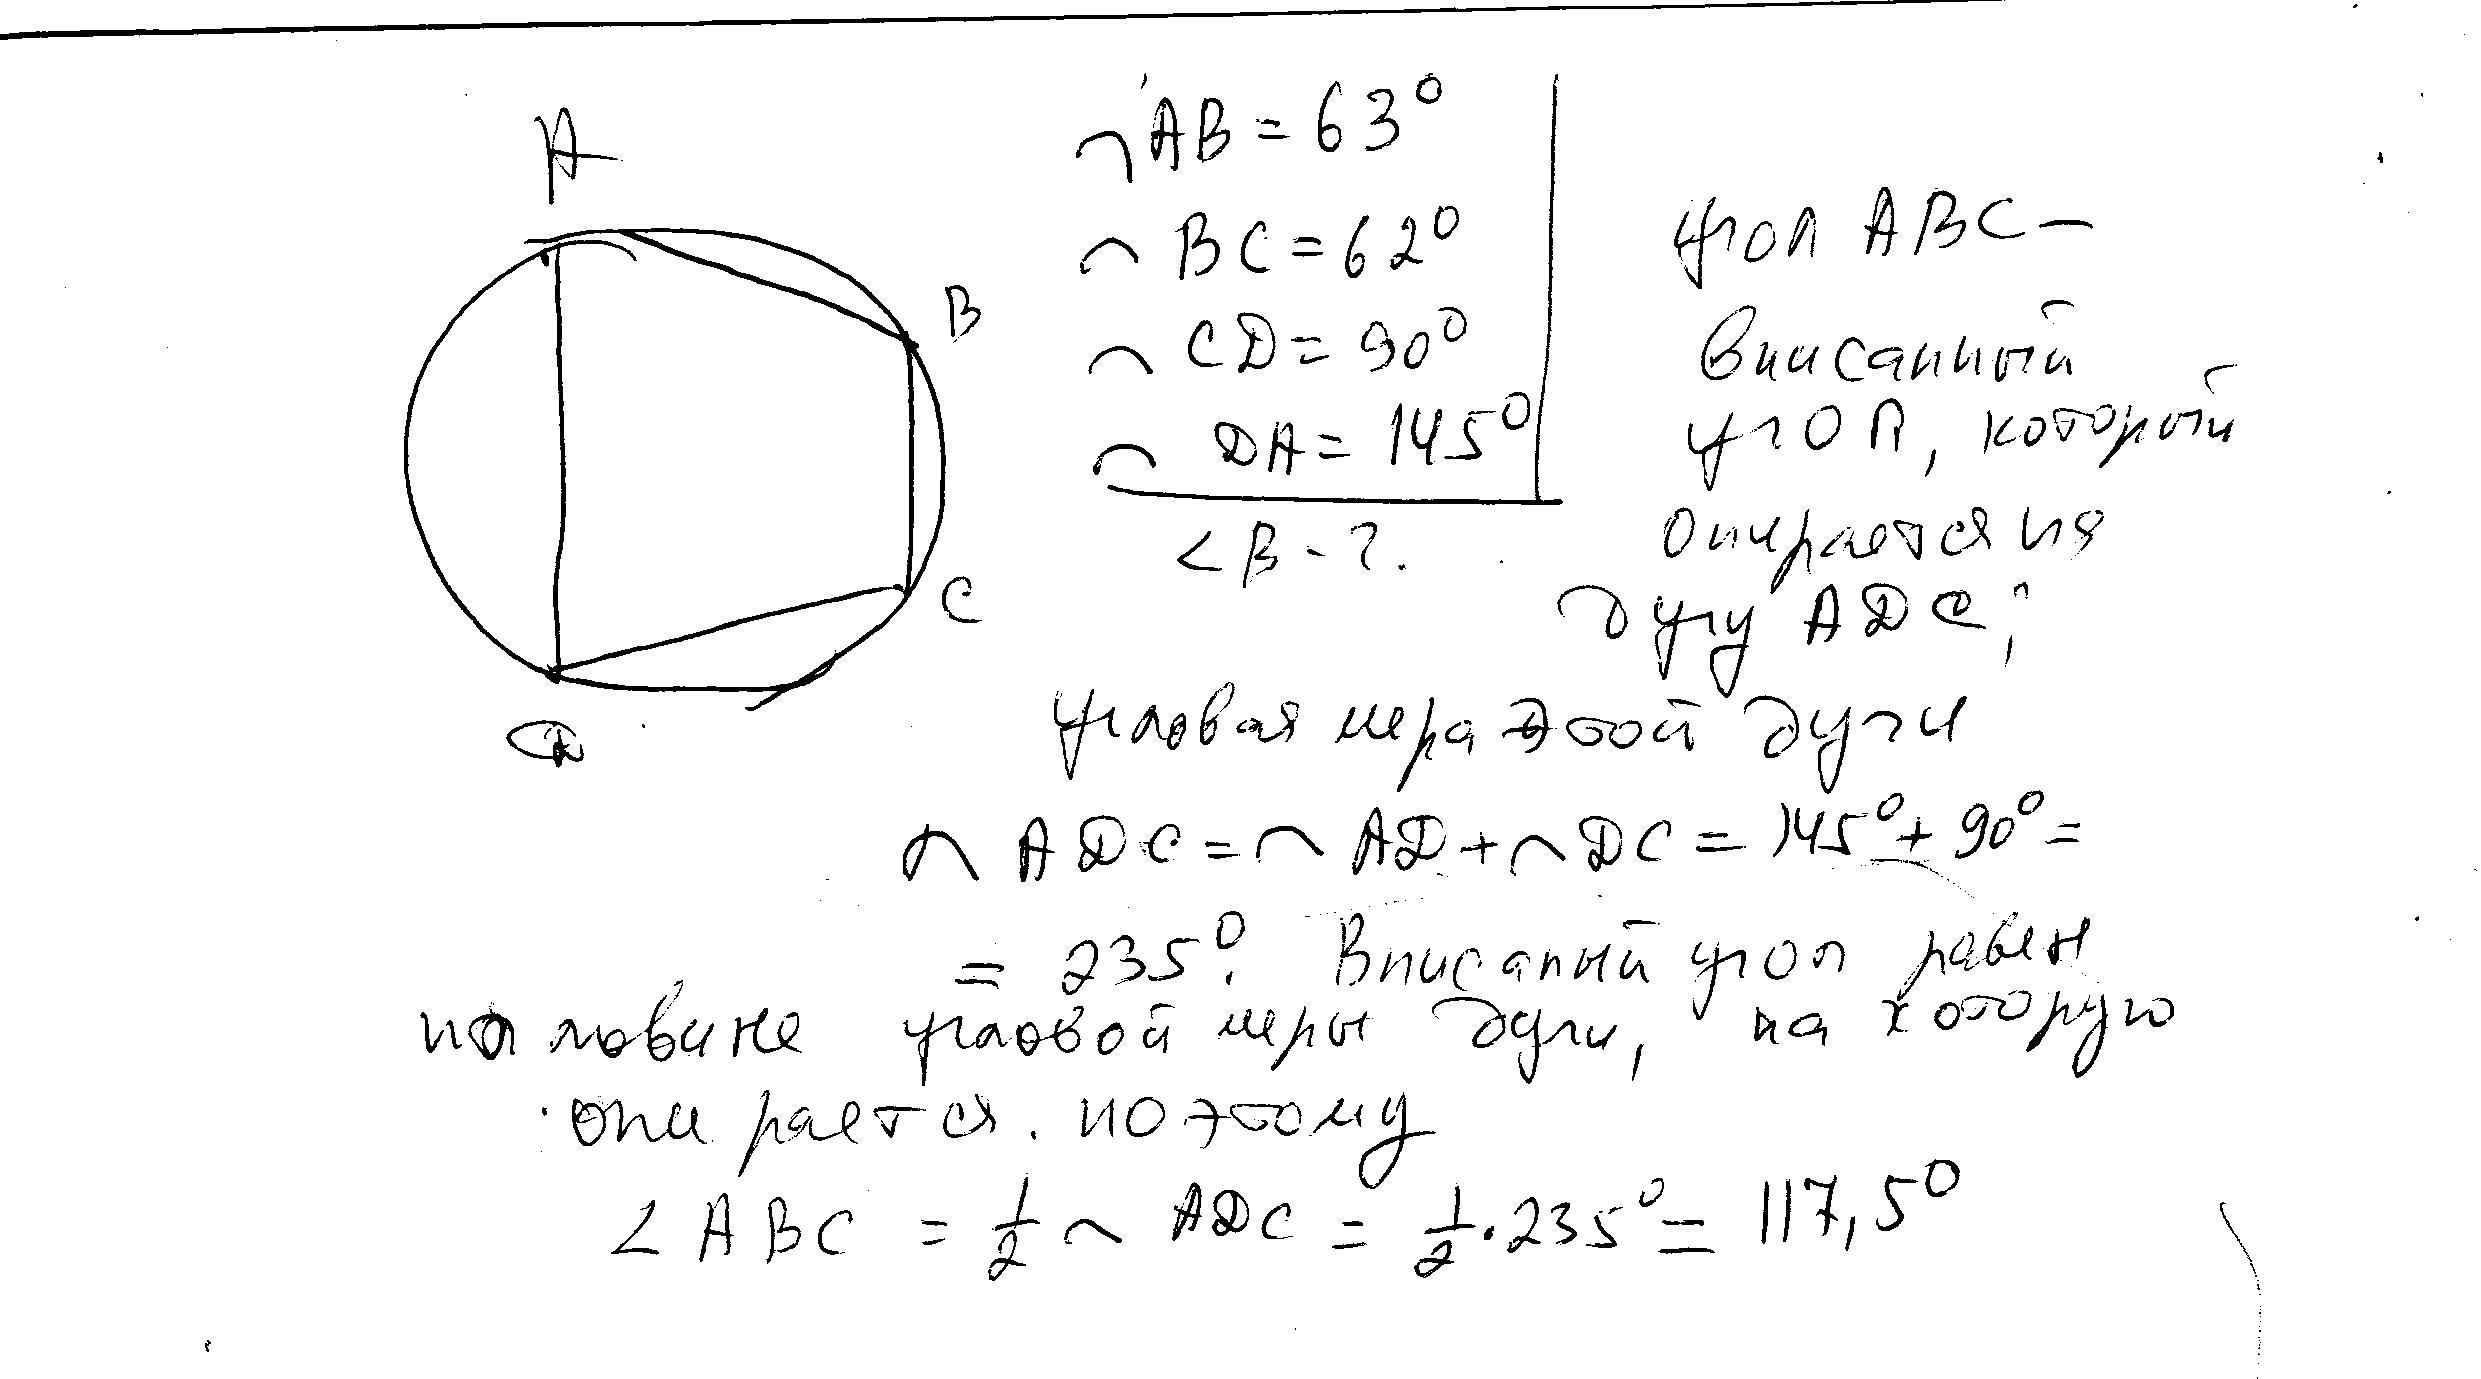 A
B
C
D
◠AB = 63°
◠ BC = 62°
◠ CD = 90°
◠ DA = 145°
∠B - ?.
угол ABC –
вписанный
угол, который
опирается на
дугу ADC;
угловая мера этой дуги
◠ ADC = ◠ AD + ◠ DC = 145° + 90° =
= 235°. Вписаный угол равен
половине угловой меры дуги, на которую
опирается. поэтому
∠ ABC = 1/2 ◠ ADC = 1/2 · 235° = 117,5°